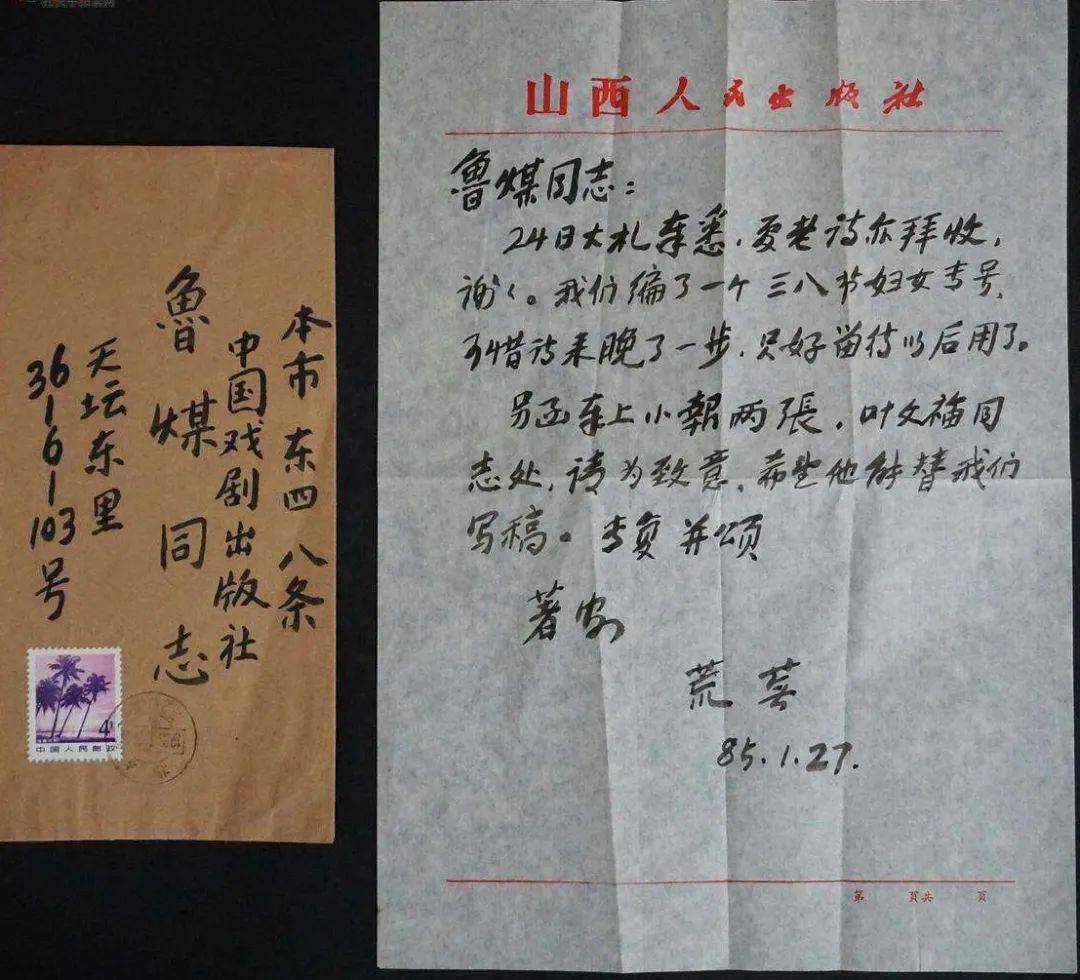 本市 东四 八条
中国戏剧出版社
魯煤同志
天坛东里
36-6-103号
4分
中国人民邮政
山西人民出版社
魯煤同志：
24日大札奉悉，老诗亦拜收，
谢々。我们编了一个三八节妇女专号，
可惜诗来晚了一步，只好留待以后用了。
另函奉上小報两張，叶文福同
志处，请为致意，希望他能替我们
写稿。专复并颂
著安
荒芜
85.1.27.
第 頁共 頁